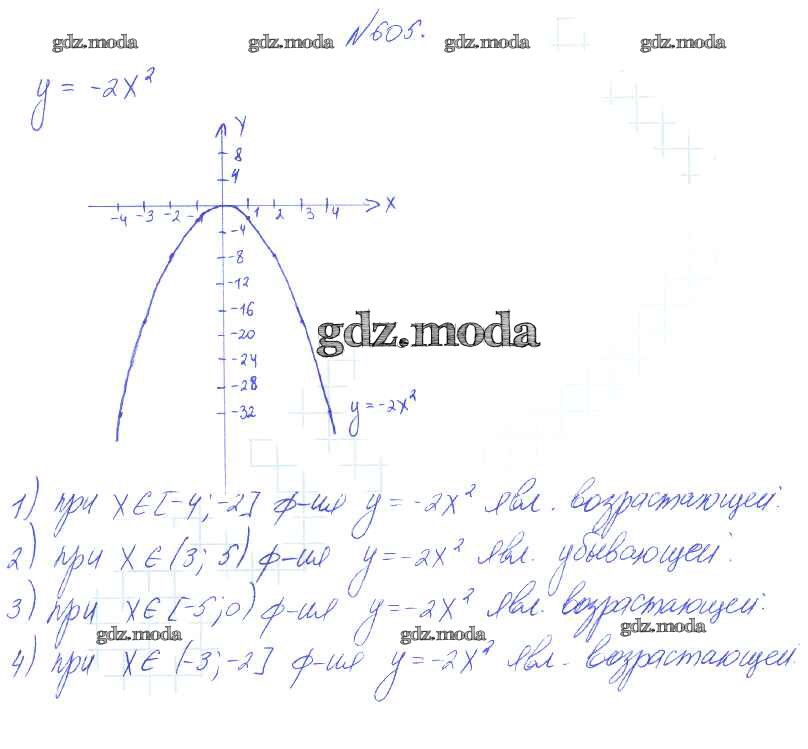 gdz.moda gdz.moda №605. gdz.moda gdz.moda
y = -2x²
y
8
4
-4 -3 -2 -1 1 2 3 4 x
-4
-8
-12
-16
gdz.moda
-20
-24
-28
-32 y=-2x²
1) при x∈[-4;-2] ф-ия y=-2x² явл. возрастающей.
2) при x∈(3;5) ф-ия y=-2x² явл. убывающей.
3) при x∈[-5;0) ф-ия y=-2x² явл. возрастающей.
gdz.moda gdz.moda gdz.moda
4) при x∈(-3;-2] ф-ия y=-2x² явл. возрастающей.